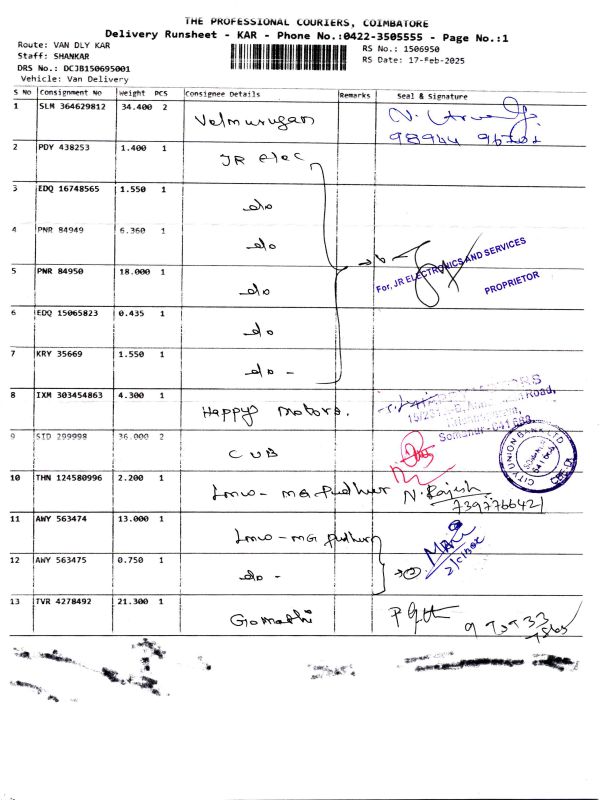 THE PROFESSIONAL COURIERS, COIMBATORE
Delivery Runsheet - KAR - Phone No.:0422-3505555 - Page No.:1
Route: VAN DLY KAR
Staff: SHANKAR
DRS No.: DCJB150695001
Vehicle: Van Delivery
RS No.: 1506950
RS Date: 17-Feb-2025
S No Consignment No Weight PCS Consignee Details Remarks Seal & Signature
1 SLM 364629812 34.400 2 Velmurugan
2 PDY 438253 1.400 1 JR elec
3 EDQ 16748565 1.550 1 do
4 PNR 84949 6.360 1 do
5 PNR 84950 18.000 1 do
For, JR ELECTRONICS AND SERVICES
PROPRIETOR
6 EDQ 15065823 0.435 1 do
7 KRY 35669 1.550 1 do -
8 IXM 303454863 4.300 1 Happy Motors.
9 SID 299998 36.000 2 CUB
CITY UNION BANK LTD
10 THN 124580996 2.200 1 Lmw - MG Pudhur N. Rajesh
7397766421
11 AWY 563474 13.000 1 Lmw - MG Pudhur
12 AWY 563475 0.750 1 do -
13 TVR 4278492 21.300 1 Gomathi